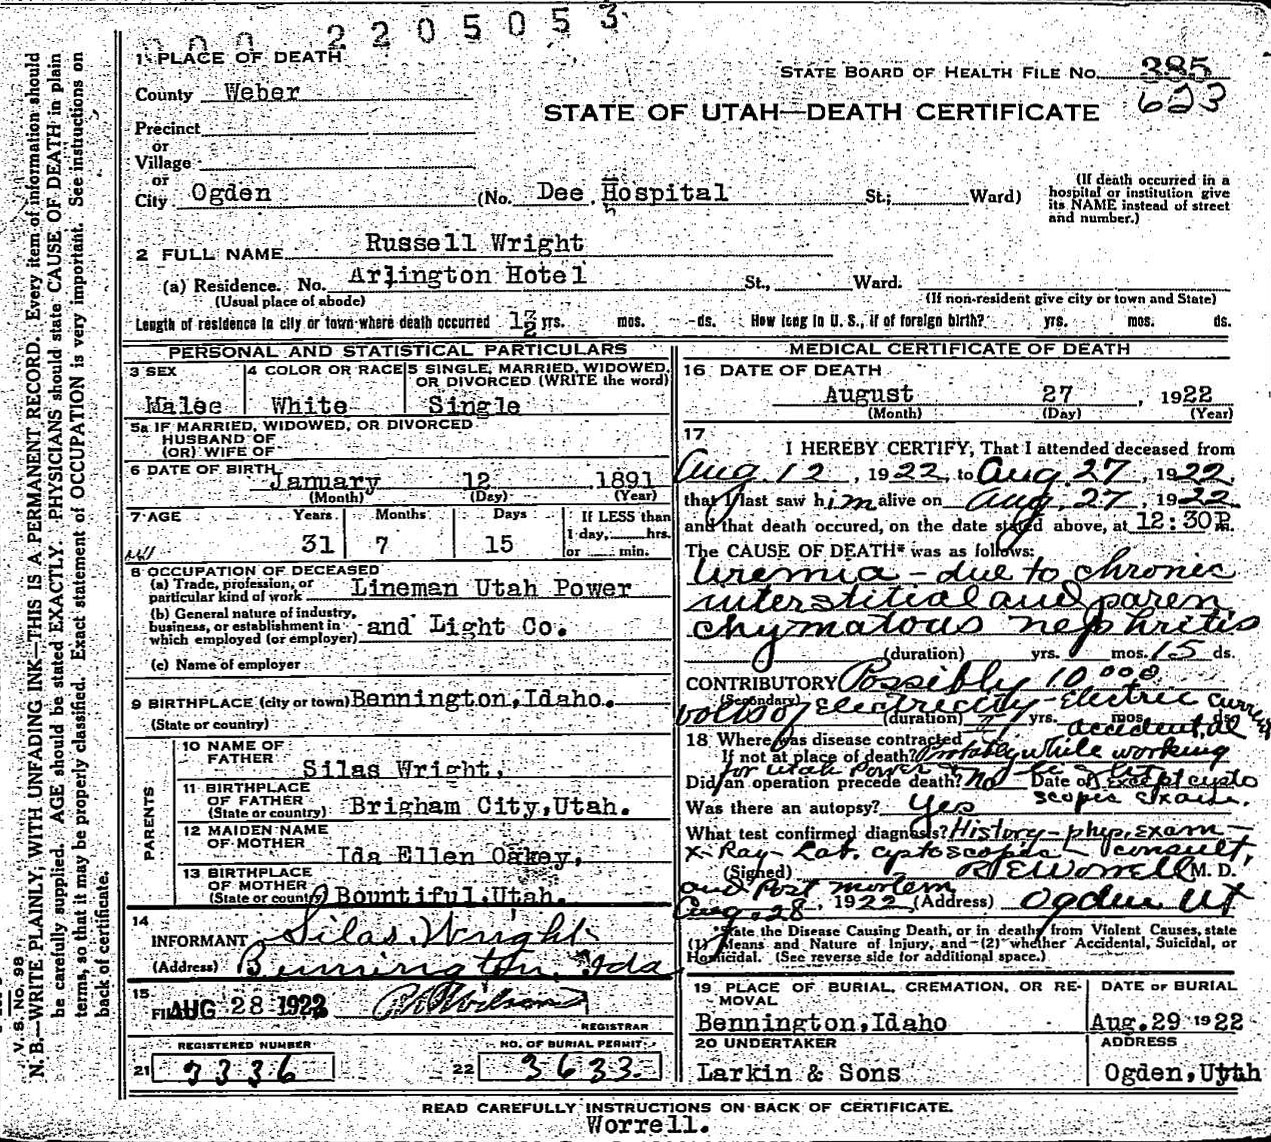 2205053
1 PLACE OF DEATH
STATE BOARD OF HEALTH FILE NO. 385
623
County Weber
STATE OF UTAH—DEATH CERTIFICATE
Precinct
or
Village
or
City Ogden (No. Dee Hospital St.; Ward)
(If death occurred in a
hospital or institution give
its NAME instead of street
and number.)
2 FULL NAME Russell Wright
(a) Residence. No. Arlington Hotel St., Ward.
(Usual place of abode) (If non-resident give city or town and State)
Length of residence in city or town where death occurred 1½ yrs. mos. ds. How long in U. S., if of foreign birth? yrs. mos. ds.
PERSONAL AND STATISTICAL PARTICULARS
3 SEX 4 COLOR OR RACE 5 SINGLE, MARRIED, WIDOWED,
OR DIVORCED (WRITE the word)
Malec White Single
5a IF MARRIED, WIDOWED, OR DIVORCED
HUSBAND OF
(OR) WIFE OF
6 DATE OF BIRTH January 12 1891
(Month) (Day) (Year)
7 AGE Years Months Days If LESS than
1 day, hrs.
or min.
31 7 15
8 OCCUPATION OF DECEASED
(a) Trade, profession, or
particular kind of work Lineman Utah Power
(b) General nature of industry,
business, or establishment in
which employed (or employer) and Light Co.
(c) Name of employer
9 BIRTHPLACE (city or town) Bennington, Idaho.
(State or country)
PARENTS
10 NAME OF
FATHER Silas Wright,
11 BIRTHPLACE
OF FATHER
(State or country) Brigham City, Utah.
12 MAIDEN NAME
OF MOTHER Ida Ellen Oakey,
13 BIRTHPLACE
OF MOTHER
(State or country) Bountiful, Utah.
14
INFORMANT Silas Wright
(Address) Bennington, Ida
15
FILED AUG 28 1922
REGISTRAR
REGISTERED NUMBER
21 3336
NO. OF BURIAL PERMIT
22 3633
MEDICAL CERTIFICATE OF DEATH
16 DATE OF DEATH
August 27, 1922
(Month) (Day) (Year)
17
I HEREBY CERTIFY, That I attended deceased from
Aug. 12, 1922, to Aug. 27, 1922,
that I last saw him alive on Aug. 27, 1922
and that death occured, on the date stated above, at 12:30P m.
The CAUSE OF DEATH* was as follows:
Uremia – due to chronic
interstitial and paren
chymatous nephritis
(duration) yrs. mos. 15 ds.
CONTRIBUTORY Possibly 10000
(Secondary)
volts of Electricity – Electric current
(duration) yrs. mos. ds.
accidental
18 Where was disease contracted
If not at place of death? Probably while working
for Utah Power & Light
Did an operation precede death? No Date of except cysto
scopic exam.
Was there an autopsy? Yes
What test confirmed diagnosis? History – phys. exam –
X-Ray – Lab. cystoscopies – consult,
(Signed) R E Worrell M. D.
and Post mortem
Aug. 28, 1922 (Address) Ogden Ut
*State the Disease Causing Death, or in deaths from Violent Causes, state
(1) Means and Nature of Injury, and (2) whether Accidental, Suicidal, or
Homicidal. (See reverse side for additional space.)
19 PLACE OF BURIAL, CREMATION, OR RE-
MOVAL
DATE OF BURIAL
Bennington, Idaho Aug. 29 1922
20 UNDERTAKER ADDRESS
Larkin & Sons Ogden, Utah
READ CAREFULLY INSTRUCTIONS ON BACK OF CERTIFICATE.
Worrell.
V. S. No. 98
N. B.—WRITE PLAINLY, WITH UNFADING INK—THIS IS A PERMANENT RECORD. Every item of information should
be carefully supplied. AGE should be stated EXACTLY. PHYSICIANS should state CAUSE OF DEATH in plain
terms, so that it may be properly classified. Exact statement of OCCUPATION is very important. See instructions on
back of certificate.